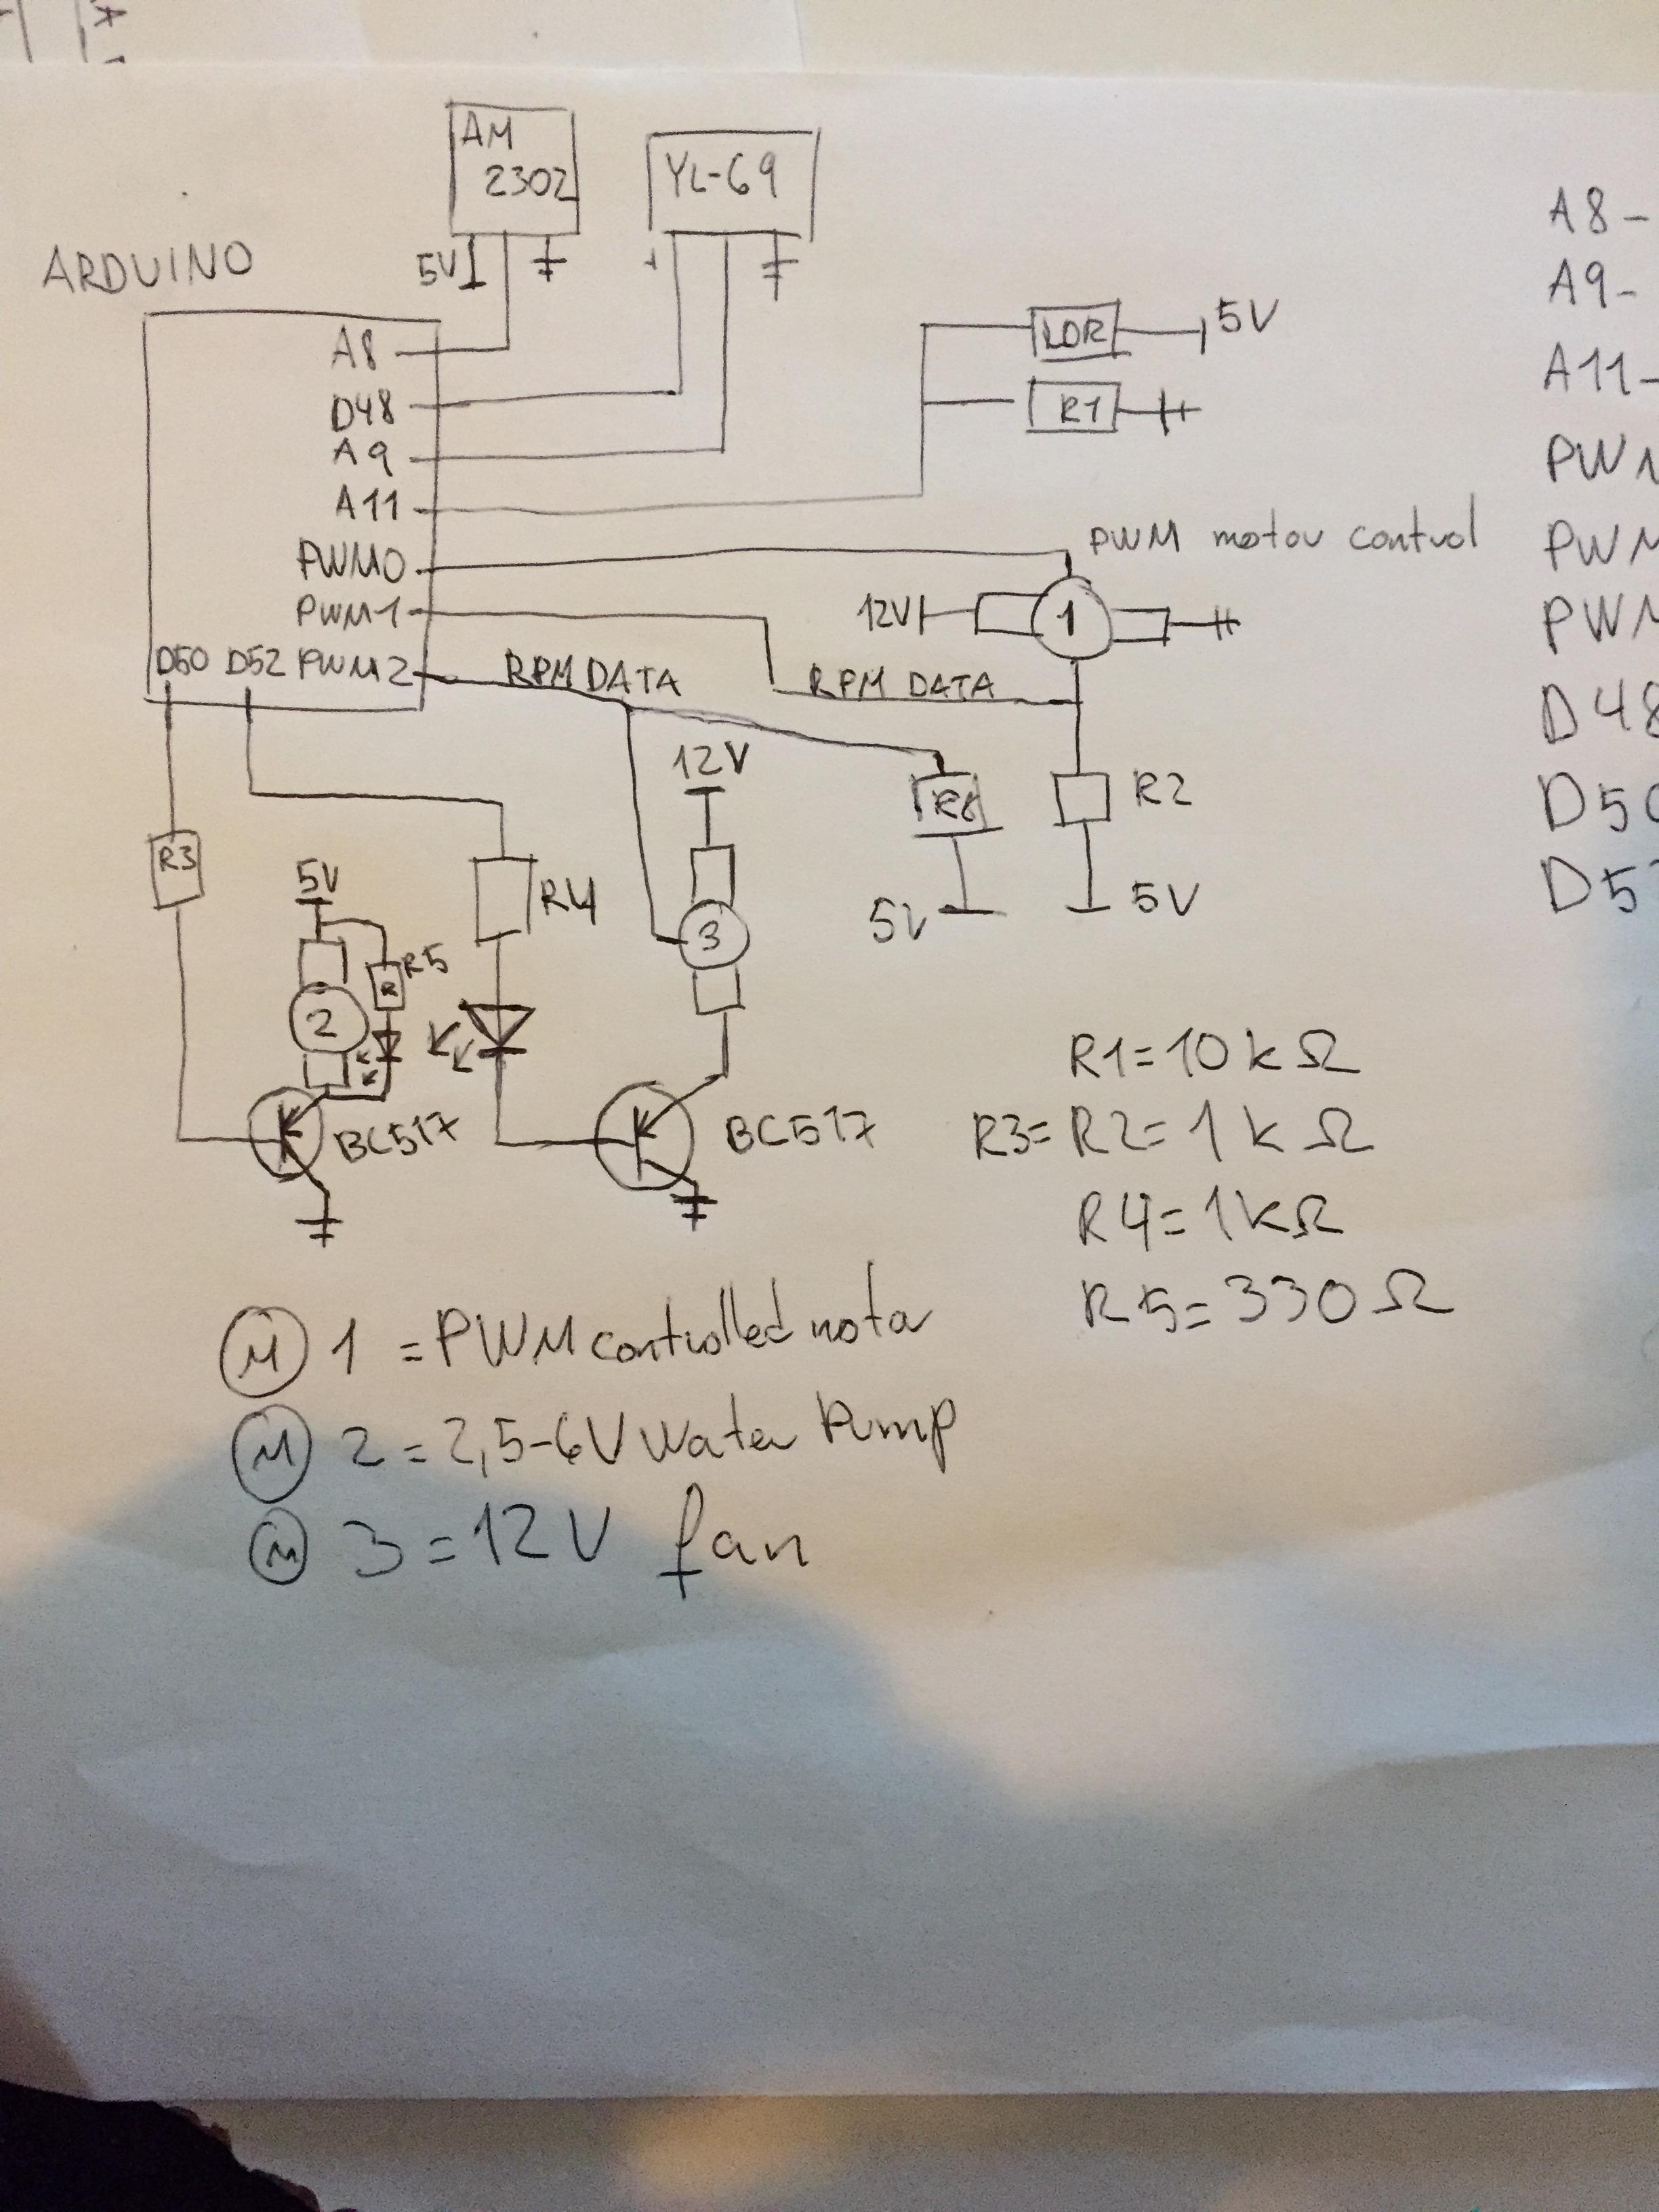 AM
2302
YL-69
ARDUINO
5V
+
A8
D48
A9
A11
PWM0
PWM1
D50 D52 PWM2
LDR
5V
R1
PWM motor control
12V
1
RPM DATA
RPM DATA
12V
R2
5V
5V
R3
5V
R4
3
R5
R
2
BC517
BC517
R1=10kΩ
R3=R2=1kΩ
R4=1kΩ
R5=330Ω
M 1 = PWM controlled motor
M 2 = 2,5-6V Water Pump
M 3 = 12V fan
A8-
A9-
A11-
D48